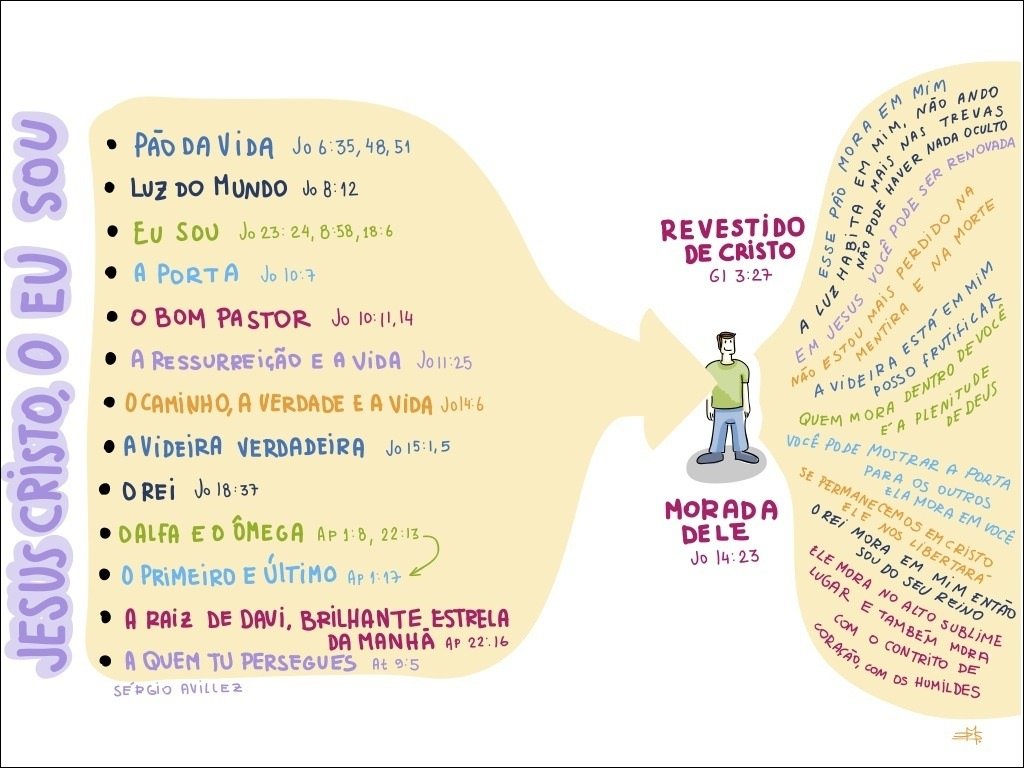 JESUS CRISTO, O EU SOU
• PÃO DA VIDA Jo 6:35, 48, 51
• LUZ DO MUNDO Jo 8:12
• EU SOU Jo 23:24, 8:58, 18:6
• A PORTA Jo 10:7
• O BOM PASTOR Jo 10:11,14
• A RESSURREIÇÃO E A VIDA Jo 11:25
• O CAMINHO, A VERDADE E A VIDA Jo 14:6
• A VIDEIRA VERDADEIRA Jo 15:1,5
• O REI Jo 18:37
• O ALFA E O ÔMEGA Ap 1:8, 22:13
• O PRIMEIRO E ÚLTIMO Ap 1:17
• A RAIZ DE DAVI, BRILHANTE ESTRELA
DA MANHÃ Ap 22:16
• A QUEM TU PERSEGUES At 9:5
SÉRGIO AVILLEZ
REVESTIDO
DE CRISTO
Gl 3:27
MORADA
DELE
Jo 14:23
ESSE PÃO MORA EM MIM
A LUZ HABITA EM MIM, NÃO ANDO
MAIS NAS TREVAS
NÃO PODE HAVER NADA OCULTO
EM JESUS VOCÊ PODE SER RENOVADA
NÃO ESTOU MAIS PERDIDO NA
MENTIRA E NA MORTE
A VIDEIRA ESTÁ EM MIM
POSSO FRUTIFICAR
QUEM MORA DENTRO DE VOCÊ
É A PLENITUDE
DE DEUS
VOCÊ PODE MOSTRAR A PORTA
PARA OS OUTROS
ELA MORA EM VOCÊ
SE PERMANECEMOS EM CRISTO
ELE NOS LIBERTARÁ
O REI MORA EM MIM ENTÃO
SOU DO SEU REINO
ELE MORA NO ALTO SUBLIME
LUGAR E TAMBÉM MORA
COM O CONTRITO DE
CORAÇÃO, COM OS HUMILDES